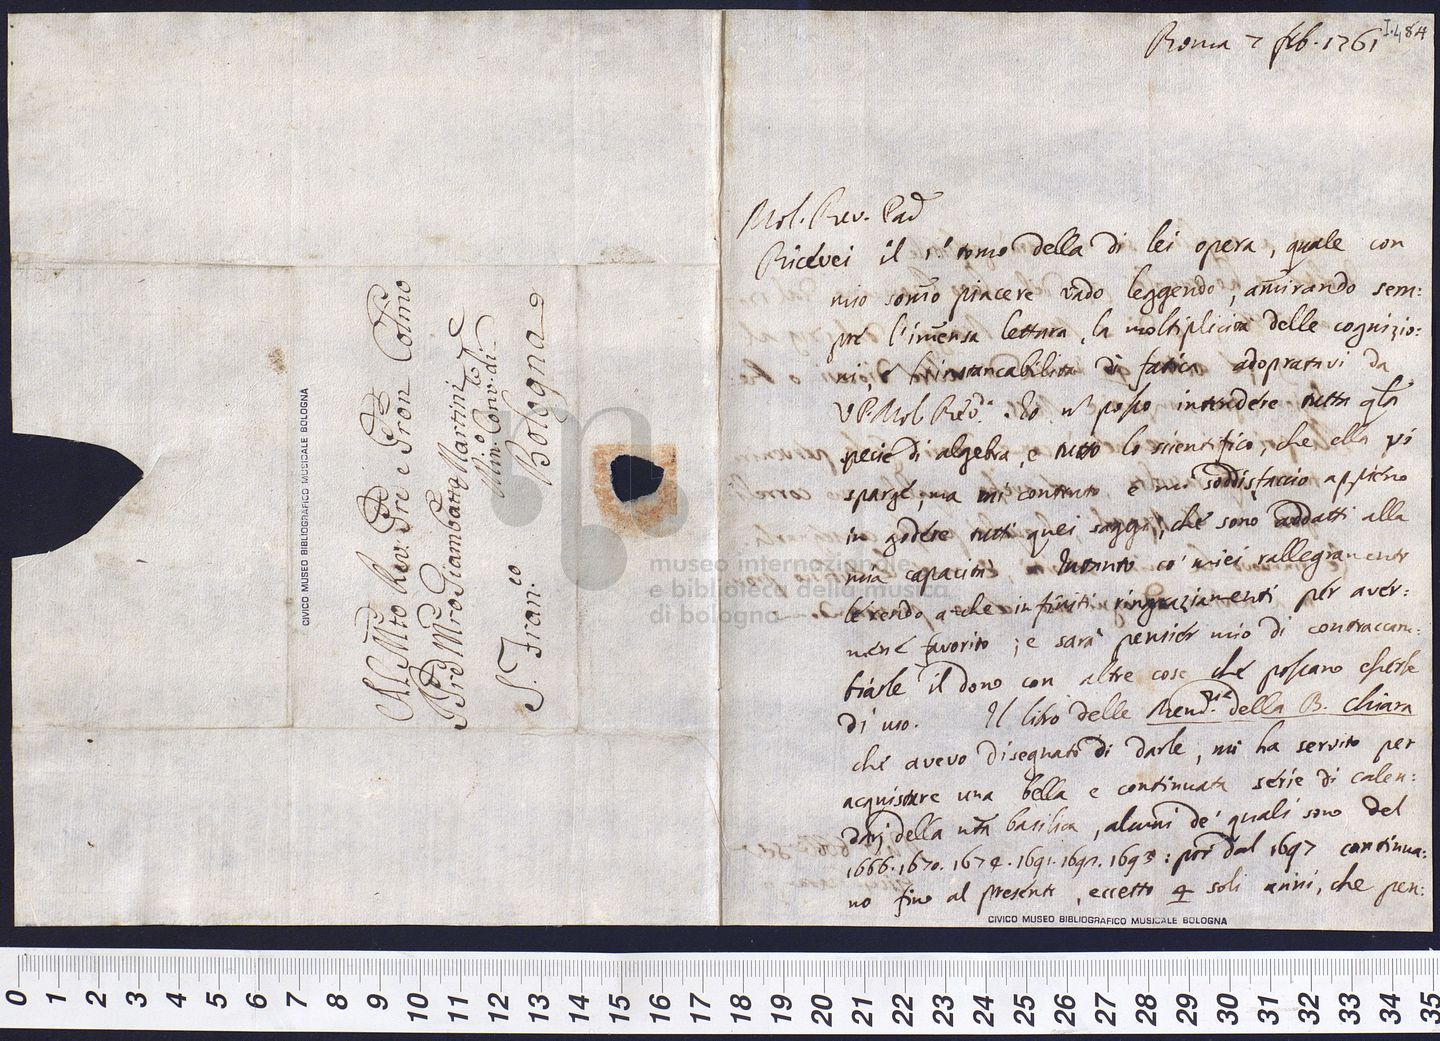 Al Mto Rev. Pre e Pron Colmo
Il Pre Mro Giambatta Martini
Min. Conv. di
S. Fran.co Bologna
CIVICO MUSEO BIBLIOGRAFICO MUSICALE BOLOGNA
I.4.84
Roma 7 feb. 1761
Mol. Rev. Pad
Ricevei il 1° tomo della di lei opera, quale con
mio somo piacere vado leggendo, amirando sem:
pre l'imensa lettura, la moltiplicità delle cognizio:
ni, e l'instancabilità di fatica adopratavi da
V P. Mol. Revd.a. Io posso intendere tutta qta
specie di algebra, e tutto lo scientifico, che ella vi
sparge, ma mi contento e mi soddisfaccio appieno
in godere tutti quei saggi, che sono addatti alla
mia capacità. Intanto co' miei rallegramenti
le rendo anche infiniti ringraziamenti per aver:
mene favorito; e sarà pensier mio di contraccam:
biarle il dono con altre cose che possano esserle
di uso. Il libro delle Rend.zie della B. Chiara
che avevo disegnato di darle, mi ha servito per
acquistare una bella e continuata serie di calen:
darj della nra basilica, alcuni de' quali sono del
1666. 1670. 1674. 1691. 1692. 1693: poi dal 1697 continua:
no fino al presente, eccetto 4 soli anni, che pen:
CIVICO MUSEO BIBLIOGRAFICO MUSICALE BOLOGNA
museo internazionale
e biblioteca della musica
di bologna
0 1 2 3 4 5 6 7 8 9 10 11 12 13 14 15 16 17 18 19 20 21 22 23 24 25 26 27 28 29 30 31 32 33 34 35